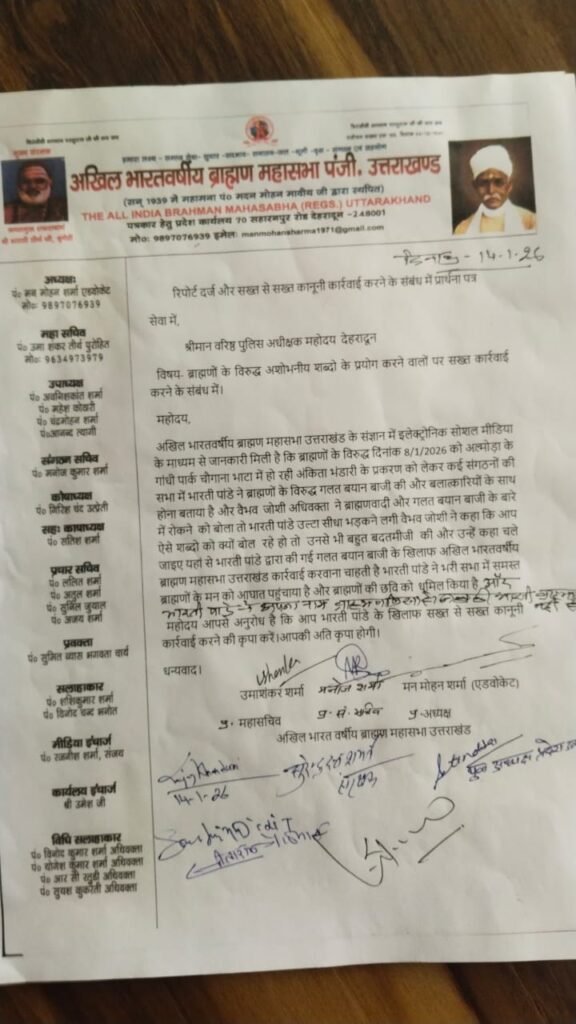 अखिल भारतवर्षीय ब्राह्मण महासभा पंजी. उत्तराखण्ड
(सन् 1939 में महामना पं० मदन मोहन मालवीय जी द्वारा स्थापित)
THE ALL INDIA BRAHMAN MAHASABHA (REGS.) UTTARAKHAND
पत्रकार हेतु प्रदेश कार्यालय 70 सहारनपुर रोड देहरादून -248001
मो०: 9897076939 इमेल: manmohansharma1971@gmail.com
दिनांक - 14-1-26
अध्यक्षः
पं० मन मोहन शर्मा एडवोकेट
मो०: 9897076939
महा सचिव
पं० उमा शंकर तीर्थ पुरोहित
मो०: 9634973979
उपाध्यक्ष
पं० अवनिशकांत शर्मा
पं० महेश कोठारी
पं० चंद्रमोहन शर्मा
पं०आनन्द त्यागी
संगठन सचिव
पं० मनोज कुमार शर्मा
कोषाध्यक्ष
पं० गिरिश चंद उत्प्रेती
सहः कोषाध्यक्ष
पं० सतिश शर्मा
प्रचार सचिव
पं० ललित शर्मा
पं० अतुल शर्मा
पं० सुनिल जुयाल
पं० अजय शर्मा
प्रवक्ता
पं० सुमित व्यास भागवता चार्य
सलाहाकार
पं० शशिकुमार शर्मा
पं० विनोद चन्द भनोत
मीडिया इंचार्ज
पं० रजनीश शर्मा, संजय
कार्यलय इंचार्ज
श्री उमेश जी
विधि सलाहाकार
पं० विनोद कुमार शर्मा अधिवक्ता
पं० योगेश कुमार शर्मा अधिवक्ता
पं० आर सी रतुडी अधिवक्ता
पं० सुयश कुकरेती अधिवक्ता
रिपोर्ट दर्ज और सख्त से सख्त कानूनी कार्रवाई करने के संबंध में प्रार्थना पत्र
सेवा में,
श्रीमान वरिष्ठ पुलिस अधीक्षक महोदय देहरादून
विषय- ब्राह्मणों के विरुद्ध अशोभनीय शब्दो के प्रयोग करने वालों पर सख्त कार्रवाई
करने के संबंध में।
महोदय,
अखिल भारतवर्षीय ब्राह्मण महासभा उत्तराखंड के संज्ञान में इलेक्ट्रोनिक सोशल मीडिया
के माध्यम से जानकारी मिली है कि ब्राह्मणों के विरुद्ध दिनांक 8/1/2026 को अल्मोड़ा के
गांधी पार्क चौगाना भाटा में हो रही अंकिता भंडारी के प्रकरण को लेकर कई संगठनों की
सभा में भारती पांडे ने ब्राह्मणों के विरुद्ध गलत बयान बाजी की और बलात्कारियों के साथ
होना बताया है और वैभव जोशी अधिवक्ता ने ब्राह्मणवादी और गलत बयान बाजी के बारे
में रोकने को बोला तो भारती पांडे उल्टा सीधा भड़कने लगी वैभव जोशी ने कहा कि आप
ऐसे शब्दो को क्यों बोल रहे हो तो उनसे भी बहुत बदतमीजी की और उन्हें कहा चले
जाइए यहाँ से भारती पांडे द्वारा की गई गलत बयान बाजी के खिलाफ अखिल भारतवर्षीय
ब्राह्मण महासभा उत्तराखंड कार्रवाई करवाना चाहती है भारती पांडे ने भरी सभा में समस्त
ब्राह्मणों के मन को आघात पहुंचाया है और ब्राह्मणों की छवि को धूमिल किया है और
महोदय आपसे अनुरोध है कि आप भारती पांडे के खिलाफ सख्त से सख्त कानूनी
कार्रवाई करने की कृपा करें।आपकी अति कृपा होगी।
धन्यवाद।
उमाशंकर शर्मा मनोज शर्मा मन मोहन शर्मा (एडवोकेट)
प्र. महासचिव प्र. सं. सचिव प्र. अध्यक्ष
अखिल भारत वर्षीय ब्राह्मण महासभा उत्तराखंड
14-1-26